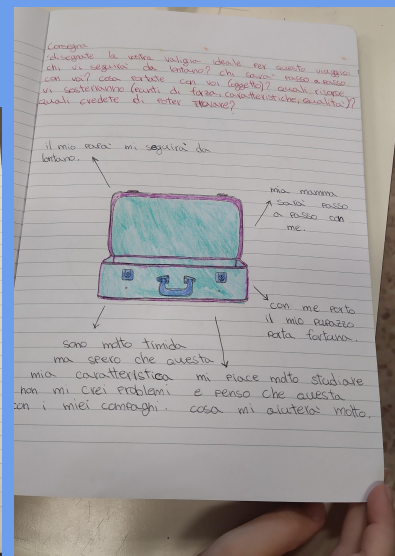 Consegna
disegnate la vostra valigia ideale per questo viaggio:
chi vi seguirà da lontano? chi sarà passo a passo
con voi? cosa portate con voi (oggetto)? quali risorse
vi sosterranno (punti di forza, caratteristiche, qualità)?
quali credete di poter trovare?
il mio papà mi seguirà da
lontano.
mia mamma
sarà passo
a passo con
me.
con me porto
il mio pupazzo
porta fortuna.
sono molto timida
ma spero che questa
mia caratteristica
non mi crei problemi
con i miei compagni.
mi piace molto studiare
e penso che questa
cosa mi aiuterà molto.